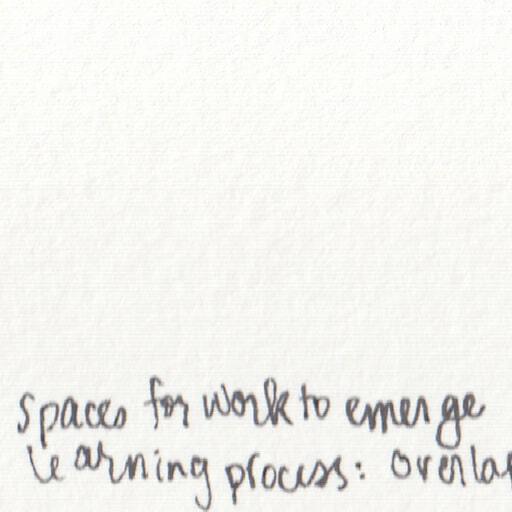 spaces for work to emerge
learning process: overlap